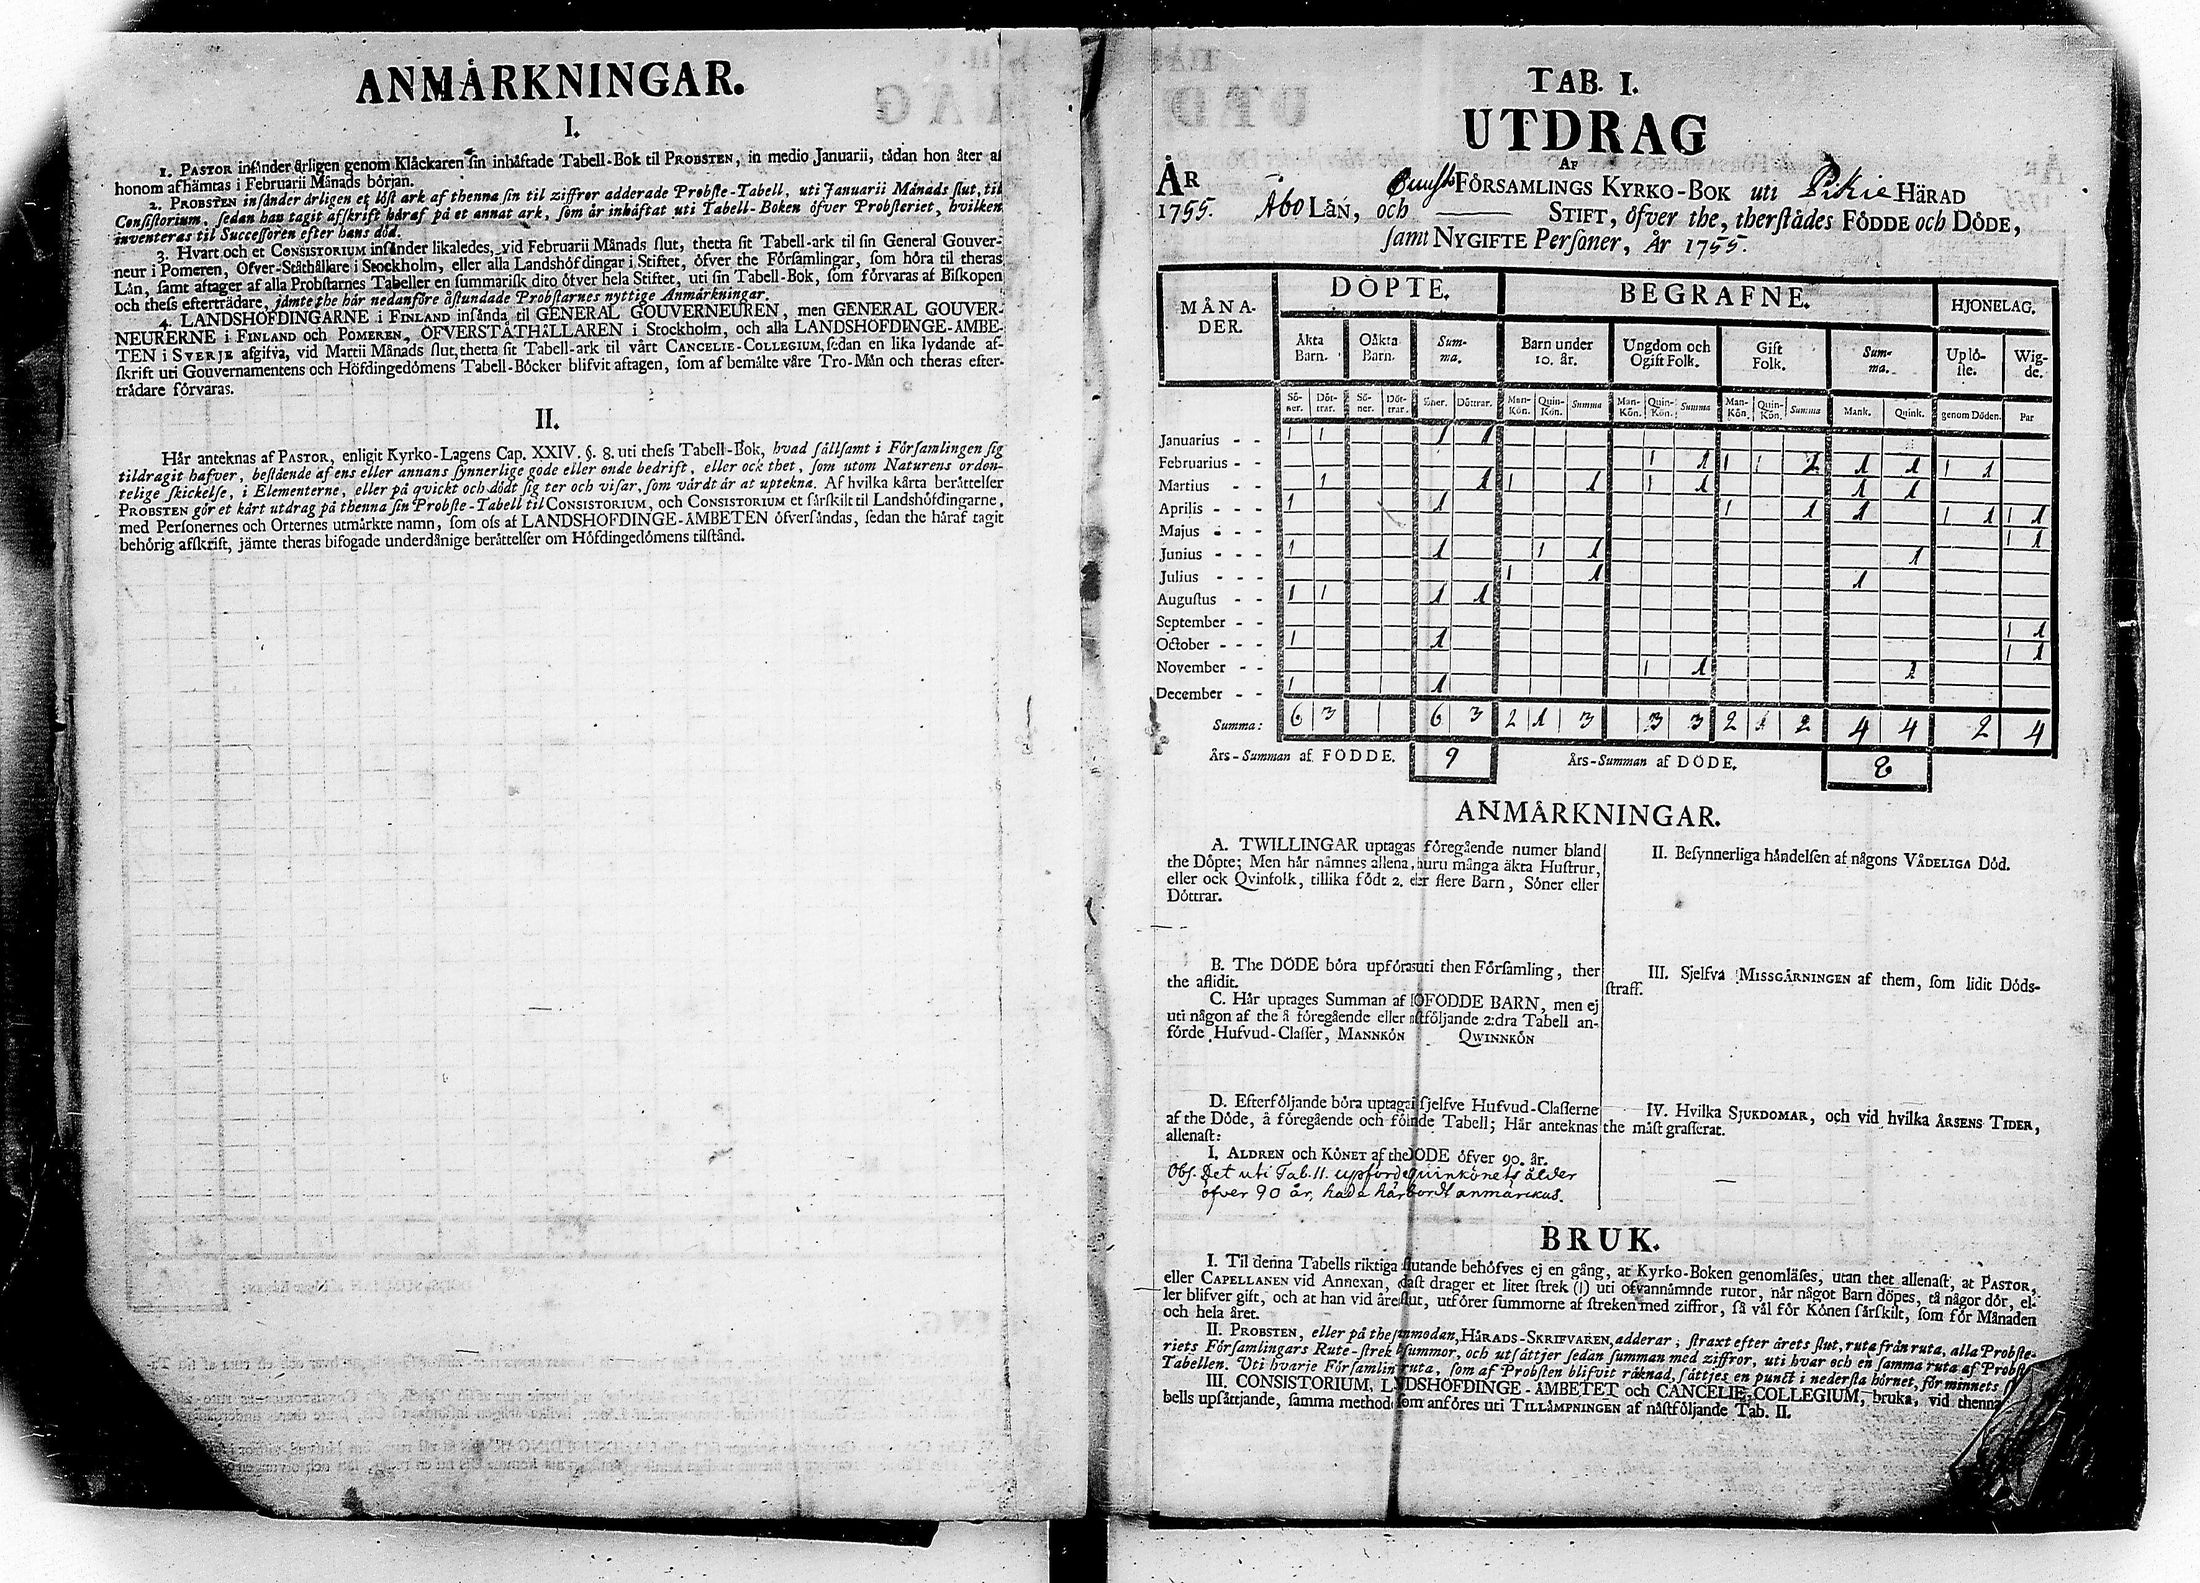 ANMÅRKNINGAR.
I.
1. PASTOR insånder årligen genom Klåckaren sin inhåftade Tabell-Bok til PROBSTEN, in medio Januarii, tådan hon åter af
honom afhåmtas i Februarii Månads början.
2. PROBSTEN insånder årligen et löst ark af thenna sin til ziffror adderade Probste-Tabell, uti Januarii Månads slut, til
Consistorium, sedan han tagit afskrift håraf på et annat ark, som år inhåftat uti Tabell-Boken öfver Probsteriet, hvilken
inventeras til Successoren efter hans död.
3. Hvart och et CONSISTORIUM insånder likaledes, vid Februarii Månads slut, thetta sit Tabell-ark til sin General Gouver-
neur i Pomeren, Öfver-Ståthållare i Stockholm, eller alla Landshöfdingar i Stiftet, öfver the Församlingar, som höra til theras
Lån, samt aftager af alla Probstarnes Tabeller en summarisk dito öfver hela Stiftet, uti sin Tabell-Bok, som förvaras af Biskopen
och thess eftertrådare, jåmte the hår nedanföre åstundade Probstarnes nyttige Anmårkningar.
4. LANDSHÖFDINGARNE i FINLAND insånda til GENERAL GOUVERNEUREN, men GENERAL GOUVER-
NEURERNE i FINLAND och POMEREN, ÖFVERSTÅTHÅLLAREN i Stockholm, och alla LANDSHÖFDINGE-ÅMBE-
TEN i SVERJE afgifva, vid Martii Månads slut, thetta sit Tabell-ark til vårt CANCELIE-COLLEGIUM, sedan en lika lydande af-
skrift uti Gouvernamentens och Höfdingedömens Tabell-Böcker blifvit aftagen, som af bemålte våre Tro-Mån och theras efter-
trådare förvaras.
II.
Hår anteknas af PASTOR, enligit Kyrko-Lagens Cap. XXIV. §. 8. uti thess Tabell-Bok, hvad sållsamt i Församlingen sig
tildragit hafver, bestående af ens eller annans synnerlige gode eller onde bedrift, eller ock thet, som utom Naturens orden-
telige skickelse, i Elementerne, eller på qvickt och dödt sig ter och visar, som vårdt år at uptekna. Af hvilka kårta beråttelser
PROBSTEN gör et kårt utdrag på thenna sin Probste-Tabell til CONSISTORIUM, och CONSISTORIUM et sårskilt til Landshöfdingarne,
med Personernes och Orternes utmårkte namn, som oss af LANDSHÖFDINGE-ÅMBETEN öfversåndas, sedan the håraf tagit
behörig afskrift, jåmte theras bifogade underdånige beråttelser om Höfdingedömens tilstånd.
TAB. I.
UTDRAG
AF
ÅR FÖRSAMLINGS KYRKO-BOK uti Pikie HÄRAD
1755. Åbo LÅN, och ——— STIFT, öfver the, therstådes FÖDDE och DÖDE,
samt NYGIFTE Personer, År 1755.
MÅNA-
DER. DÖPTE. BEGRAFNE. HJONELAG.
Äkta
Barn. Oåkta
Barn. Sum-
ma. Barn under
10. år. Ungdom och
Ogift Folk. Gift
Folk. Sum-
ma. Uplö-
ste. Wig-
de.
Sö-
ner. Döt-
trar. Sö-
ner. Döt-
trar. Söner. Döttrar. Man-
Kön. Quin-
Kön. Summa Man-
Kön. Quin-
Kön. Summa Man-
Kön. Quin-
Kön. Summa Mank. Quink. genom Döden. Par
Januarius - - 1 1 1 1
Februarius - - 1 1 1 1 2 1 1 1 1
Martius - - 1 1 1 1 1 1 1 1
Aprilis - - - 1 1 1 1 1 1 1 1 1
Majus - - - 1 1
Junius - - - 1 1 1 1 1
Julius - - - 1 1 1
Augustus - - 1 1 1 1
September - - 1 1
October - - - 1 1 1 1
November - - 1 1 1
December - - 1 1
Summa: 6 3 6 3 2 1 3 3 3 2 1 2 4 4 2 4
Års-Summan af FÖDDE. 9 Års-Summan af DÖDE. 8
ANMÅRKNINGAR.
A. TWILLINGAR uptagas föregående numer bland
the Döpte; Men hår nåmnes allena, huru många äkta Hustrur,
eller ock Qvinfolk, tillika födt 2. eller flere Barn, Söner eller
Döttrar.
B. The DÖDE böra upföras uti then Församling, ther
the aflidit.
C. Hår uptages Summan af OFÖDDE BARN, men ej
uti någon af the å föregående eller nåstföljande 2:dra Tabell an-
förde Hufvud-Classer, MANNKÖN QWINNKÖN
D. Efterföljande böra uptagas sjelfve Hufvud-Classerne
af the Döde, å föregående och följande Tabell; Hår anteknas
allenast:
I. ALDREN och KÖNET af the DÖDE öfver 90. år.
Obs. Det uti Tab. II. upförde quinkönets ålder
öfver 90 år, hade här bordt anmärckas.
II. Besynnerliga håndelsen af någons VÅDELIGA Död.
III. Sjelfva MISSGÅRNINGEN af them, som lidit Döds-
straff.
IV. Hvilka SJUKDOMAR, och vid hvilka ÅRSENS TIDER,
the måst grasserat.
BRUK.
I. Til denna Tabells riktiga slutande behöfves ej en gång, at Kyrko-Boken genomläses, utan thet allenast, at PASTOR,
eller CAPELLANEN vid Annexan, dast drager et litet strek (1) uti ofvannåmnde rutor, når något Barn döpes, tå någor dör, el-
ler blifver gift, och at han vid året slut, utförer summorne af streken med ziffror, så vål för Könen sårskilt, som för Månaden
och hela året.
II. PROBSTEN, eller på the HÅRADS-SKRIFVAREN, adderar, straxt efter årets slut, ruta från ruta, alla Probste-
riets Församlingars Rute-strek summor, och utsåttjer sedan summan med ziffror, uti hvar och en samma ruta af Probste
Tabellen. Uti hvarje Församlin ruta, som af Probsten blifvit råknad, såttjes en punct i nedersta hörnet, för minnets
III. CONSISTORIUM, LANDSHÖFDINGE-ÅMBETET och CANCELIE-COLLEGIUM, bruka, vid thenna
bells upsåttjande, samma method som anföres uti TILLÅMPNINGEN af nåstföljande Tab. II.